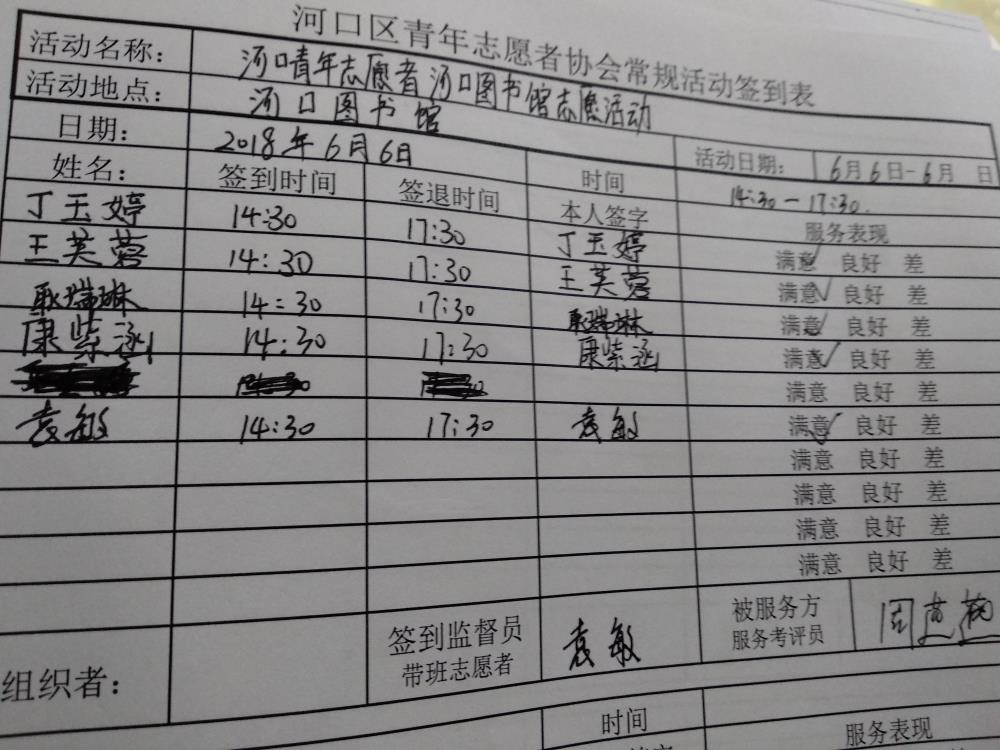 河口区青年志愿者协会常规活动签到表
活动名称： 河口青年志愿者河口图书馆志愿活动
活动地点： 河口图书馆
日期： 2018年6月6日 活动日期： 6月6日-6月 日
姓名： 签到时间 签退时间 时间 14:30-17:30.
本人签字 服务表现
丁玉婷 14:30 17:30 丁玉婷 满意 良好 差
王芙蓉 14:30 17:30 王芙蓉 满意 良好 差
耿瑞琳 14:30 17:30 耿瑞琳 满意 良好 差
康紫涵 14:30 17:30 康紫涵 满意 良好 差
满意 良好 差
袁敏 14:30 17:30 袁敏 满意 良好 差
满意 良好 差
满意 良好 差
满意 良好 差
满意 良好 差
组织者： 签到监督员 袁敏 被服务方 周
带班志愿者 服务考评员
时间 服务表现